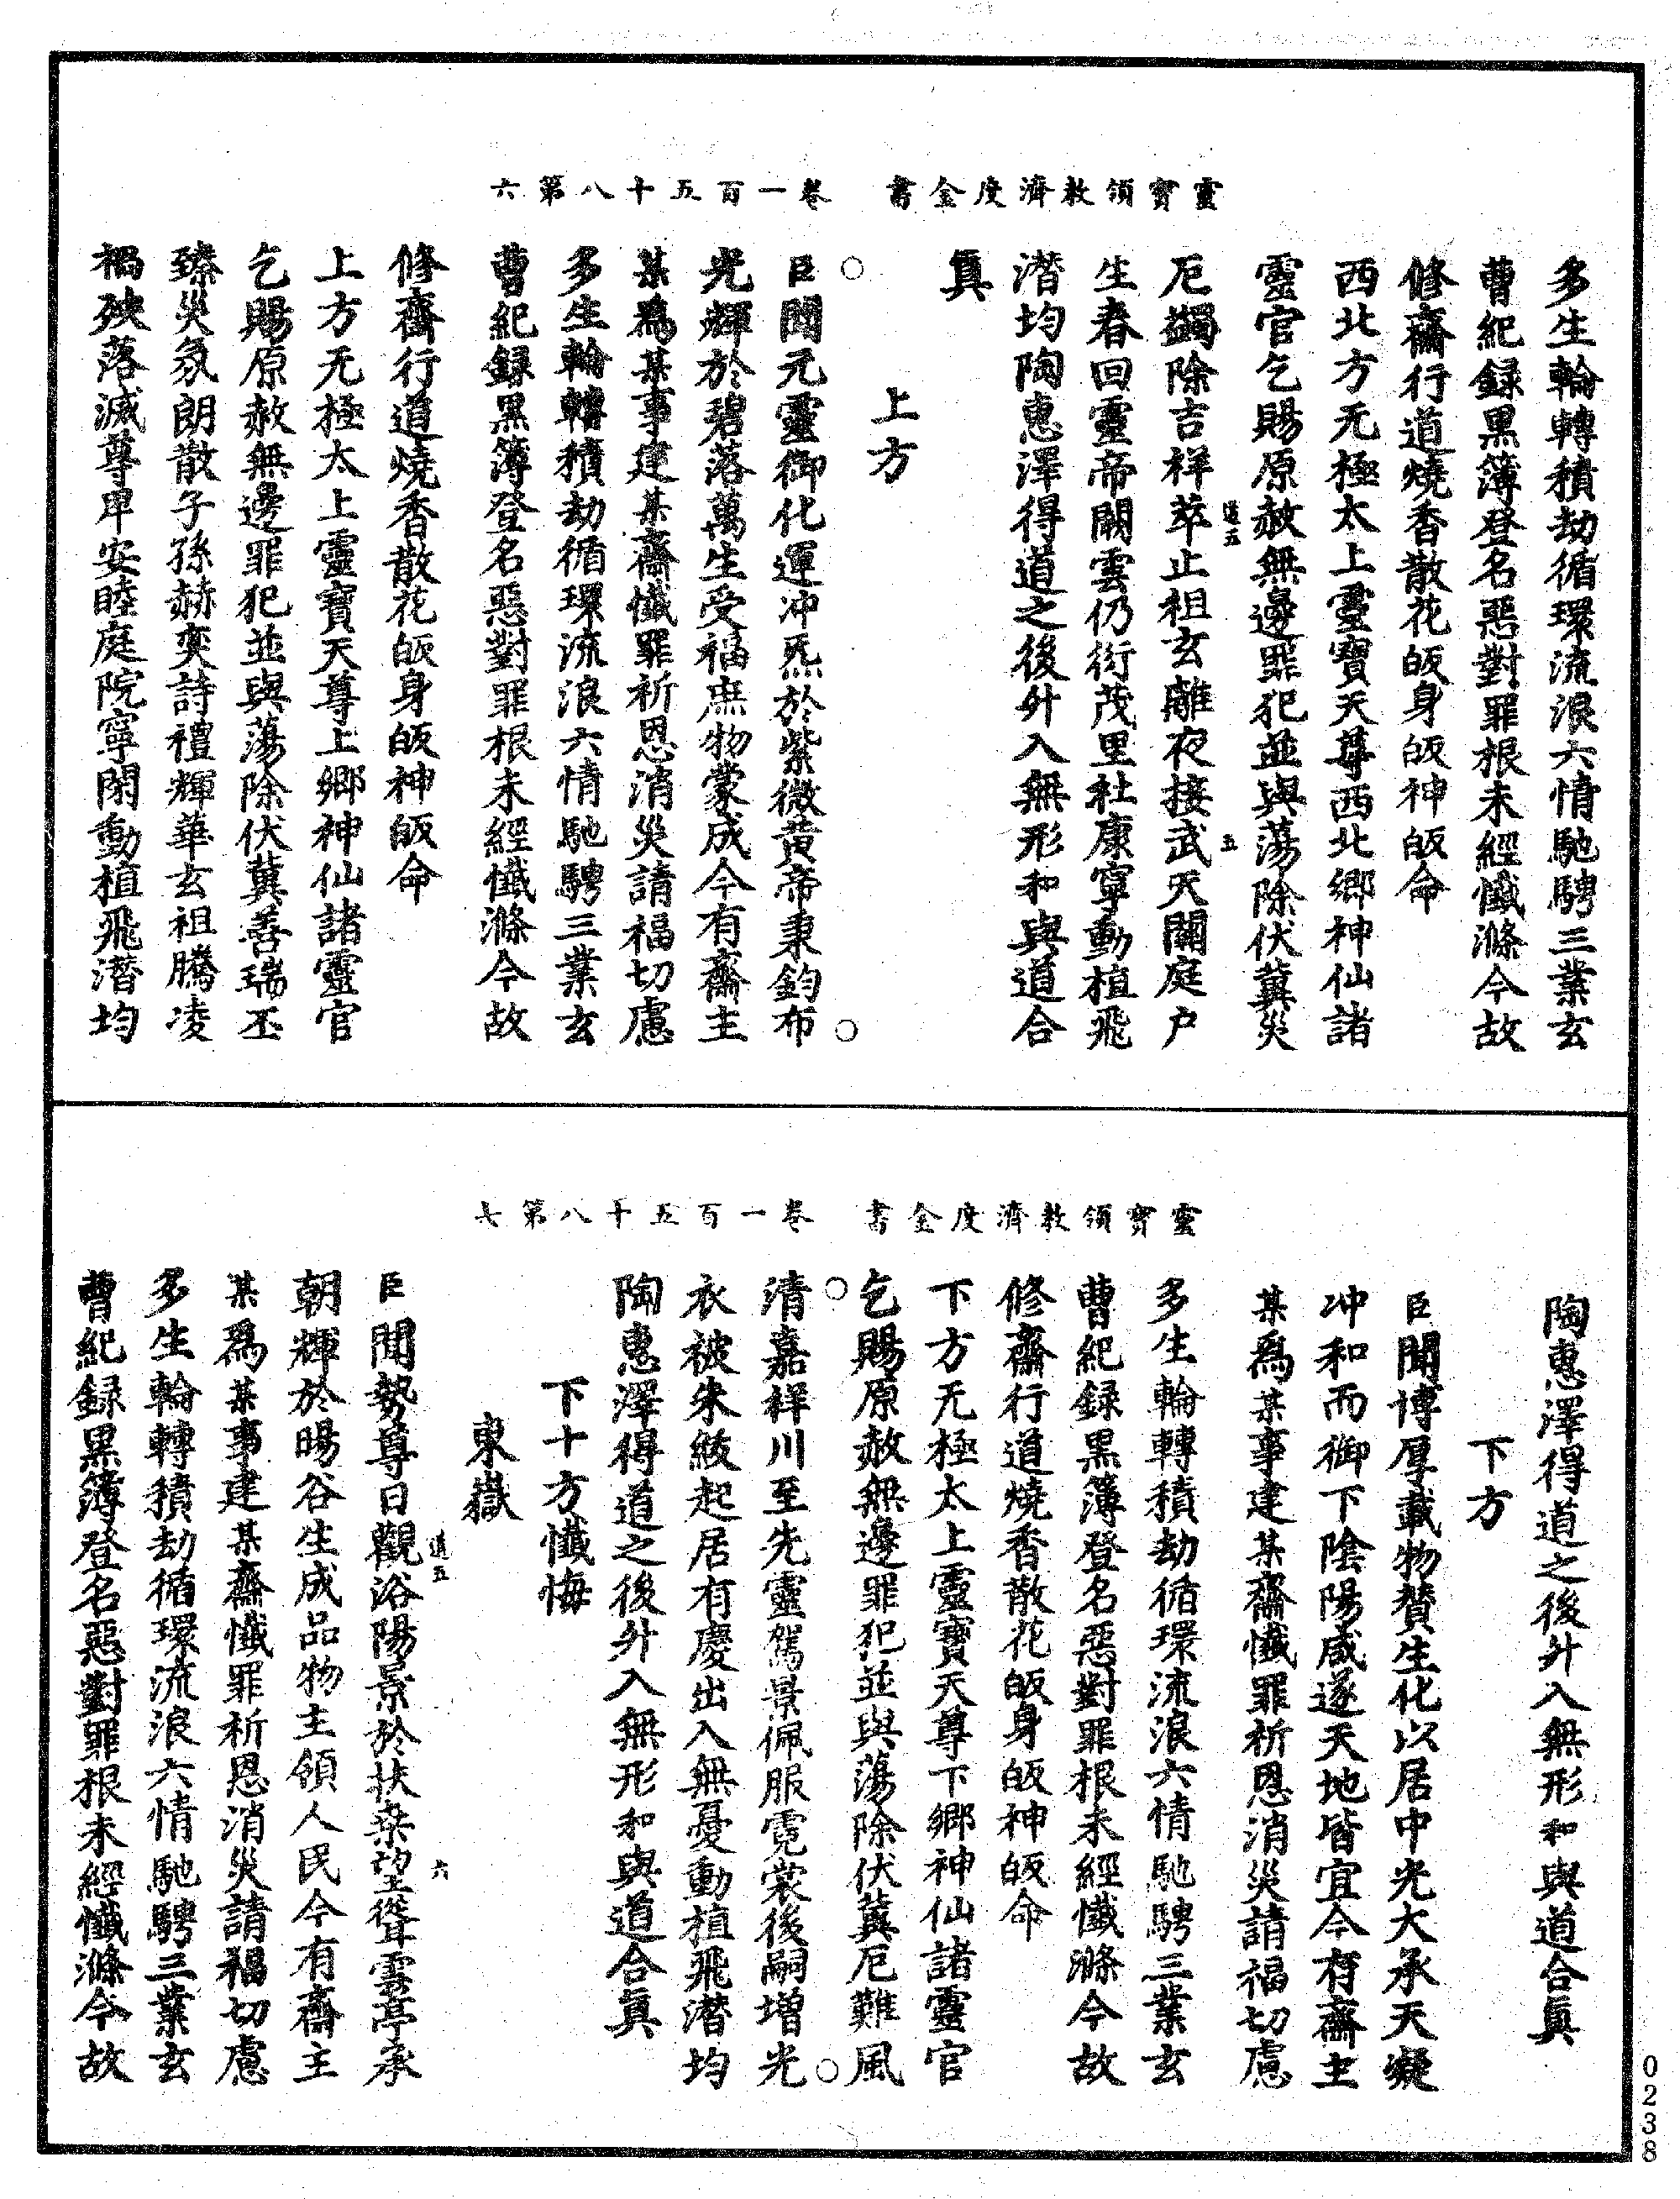 靈寶領教濟度金書　卷一百五十八第六
多生輪轉積劫循環流浪六情馳騁三業玄
曹紀録黑簿登名惡對罪根未經懺滌今故
修齋行道燒香散花皈身皈神皈命
西北方无極太上靈寶天尊西北鄉神仙諸
靈官乞賜原赦無邊罪犯並與蕩除伏冀災
道五
五
厄蠲除吉祥萃止祖玄離夜接武天關庭户
生春回靈帝闕雲仍衍茂里社康寧動植飛
潛均陶惠澤得道之後升入無形和與道合
眞
上方
臣聞元靈御化運冲炁於紫微黃帝秉鈞布
光輝於碧落萬生受福庶物蒙成今有齋主
某爲某事建某齋懺罪祈恩消災請福切慮
多生輪轉積劫循環流浪六情馳騁三業玄
曹紀録黑簿登名惡對罪根未經懺滌今故
修齋行道燒香散花皈身皈神皈命
上方无極太上靈寶天尊上鄉神仙諸靈官
乞賜原赦無邊罪犯並與蕩除伏冀善瑞丕
臻災氛朗散子孫赫奕詩禮輝華玄祖騰凌
禍殃落滅尊卑安睦庭院寧閑動植飛潛均
靈寶領教濟度金書　卷一百五十八第七
陶惠澤得道之後升入無形和與道合眞
下方
臣聞博厚載物贊生化以居中光大承天凝
冲和而御下陰陽咸遂天地皆宜今有齋主
某爲某事建某齋懺罪祈恩消災請福切慮
多生輪轉積劫循環流浪六情馳騁三業玄
曹紀録黑簿登名惡對罪根未經懺滌今故
修齋行道燒香散花皈身皈神皈命
下方无極太上靈寶天尊下鄉神仙諸靈官
乞賜原赦無邊罪犯並與蕩除伏冀厄難風
清嘉祥川至先靈駕景佩服霓裳後嗣增光
衣被朱紱起居有慶出入無憂動植飛潛均
陶惠澤得道之後升入無形和與道合眞
下十方懺悔
東嶽
道五
六
臣聞勢尊日觀浴陽景於扶桑望聳雲亭承
朝輝於暘谷生成品物主領人民今有齋主
某爲某事建某齋懺罪祈恩消災請福切慮
多生輪轉積劫循環流浪六情馳騁三業玄
曹紀録黑簿登名惡對罪根未經懺滌今故
0238